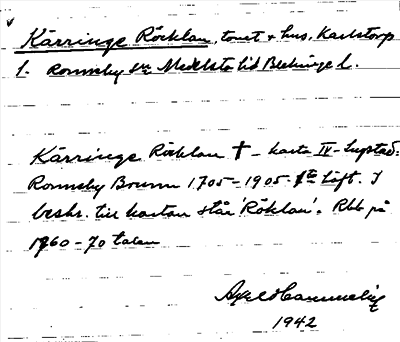 Kärringe Röcklan, tomt + hus, Karlstorp
f. Ronneby sn Medelsta hd Blekinge l.
Kärringe Röcklan † - karta IV - Sugstad.
Ronneby Brunn 1705-1905 1ta häft. I
beskr. till kartan står 'Röklan'. Rbb på
1960-70 talen
1942